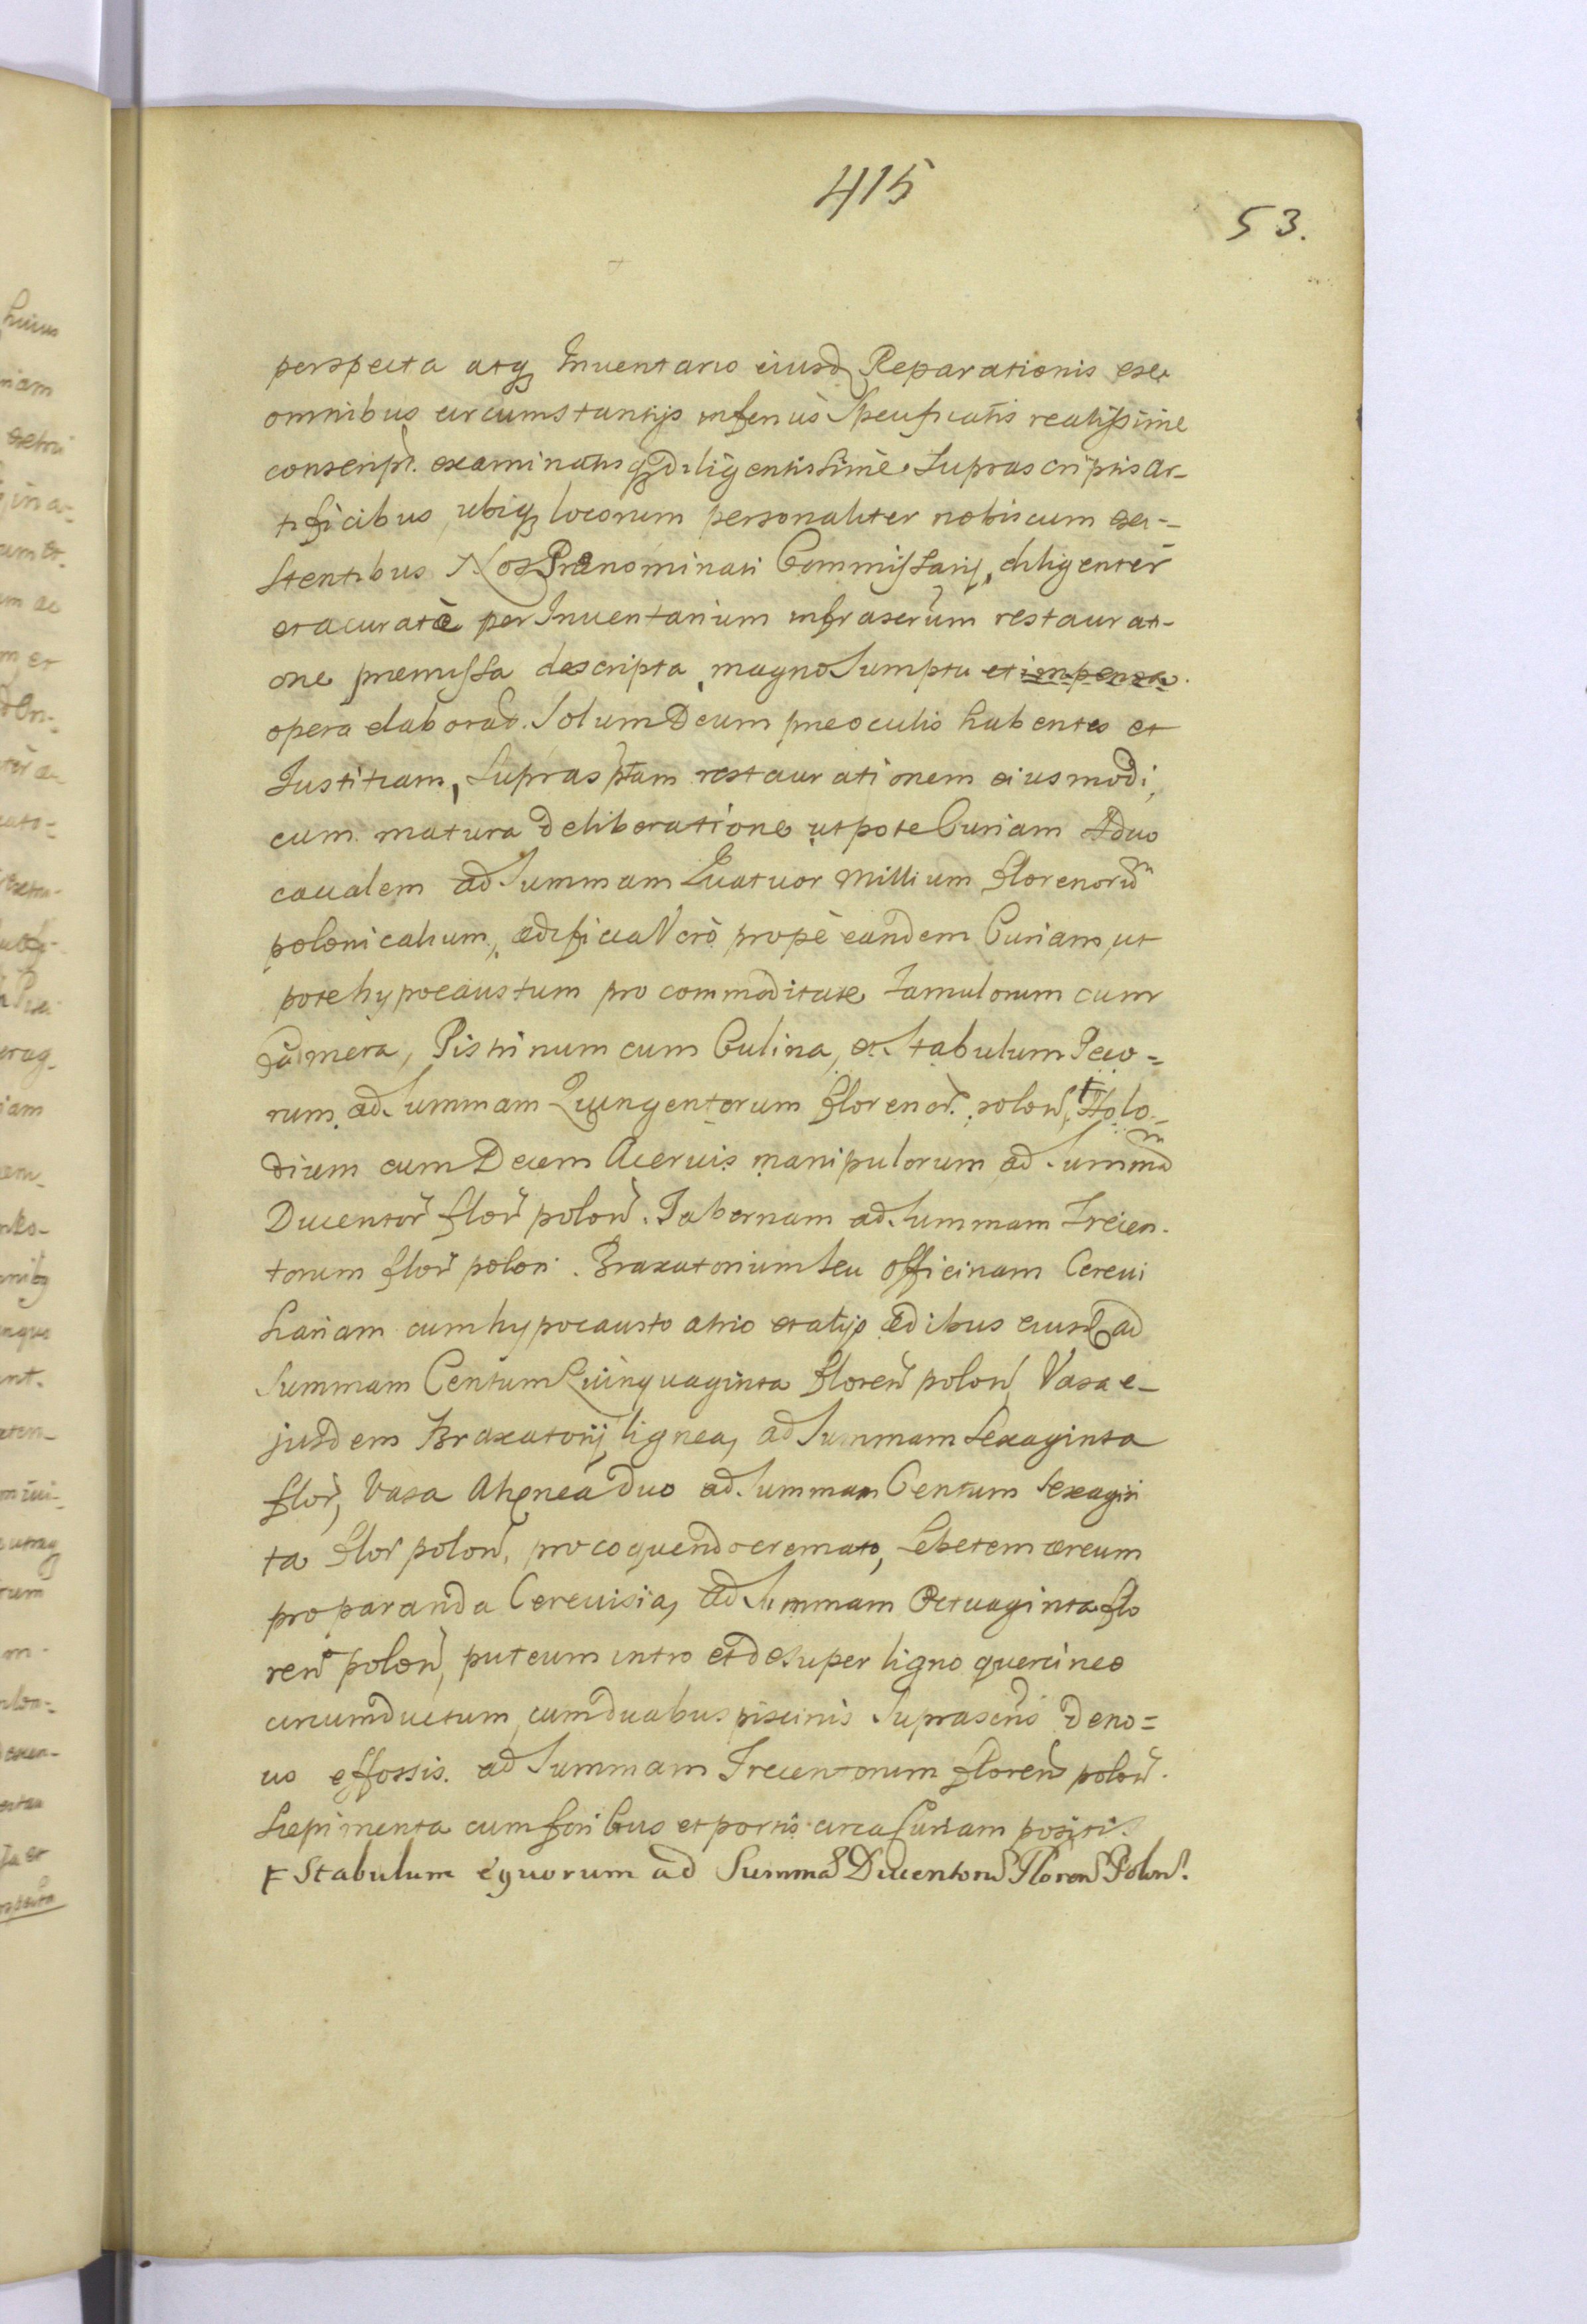 415
53.
perspecta atq Inventario eiusd Reparationis ex
omnibus circumstantijs inferius Specificatis realissime
conscript. examinatis q diligentissime Suprascriptis ar-
tificibus ubiq locorum personaliter nobiscum exi-
stentibus Nos Prænominati Commissarij, diligenter
et acuratè per Inventarium infrascrium restaurati-
one premissa descripta, magno Sumptu et impensa
opera elaborat. Solum Deum præ oculis habentes et
Justitiam, Suprasptam restaurationem eiusmodi,
cum matura deliberatione utpote Curiam Aduo
caualem ad Summam Quatuor Millium Florenorum
polonicalium, ædificia Verò propè eandem Curiam, ut
pote hypocaustum pro commoditate famulorum cum
Camera, Pistrinum cum Culina, et Stabulum Peco-
rum, ad Summam Quingentorum florenor. polon, Holo-
dium cum Decem Aceruis manipulorum ad Summam
Ducentor flor polon. Tabernam ad Summam Trecen-
torum flor polon. Braxatorium seu officinam Cereui
siariam cum hypocausto atrio et alijs ædibus eiusd ad
Summam Centum Quinquaginta Floren polon, Vasa e-
jusdem Braxatorij lignea, ad Summam Sexaginta
flor, Vasa Ahenea duo ad Summam Centum Sexagin
ta flor polon, pro coquendo cremato, Lebetem æreum
pro paranda Cereuisia, ad Summam Octuaginta flo
ren polon, puteum intro et desuper ligno quercineo
circumductum, cum duabus piscinis Suprascris deno=
uo effossis. ad Summam Trecentorum floren polon.
Sepimenta cum foribus et portis circa Curiam positis
Ŧ Stabulum equorum ad Summa Ducentoru Floren Polon.